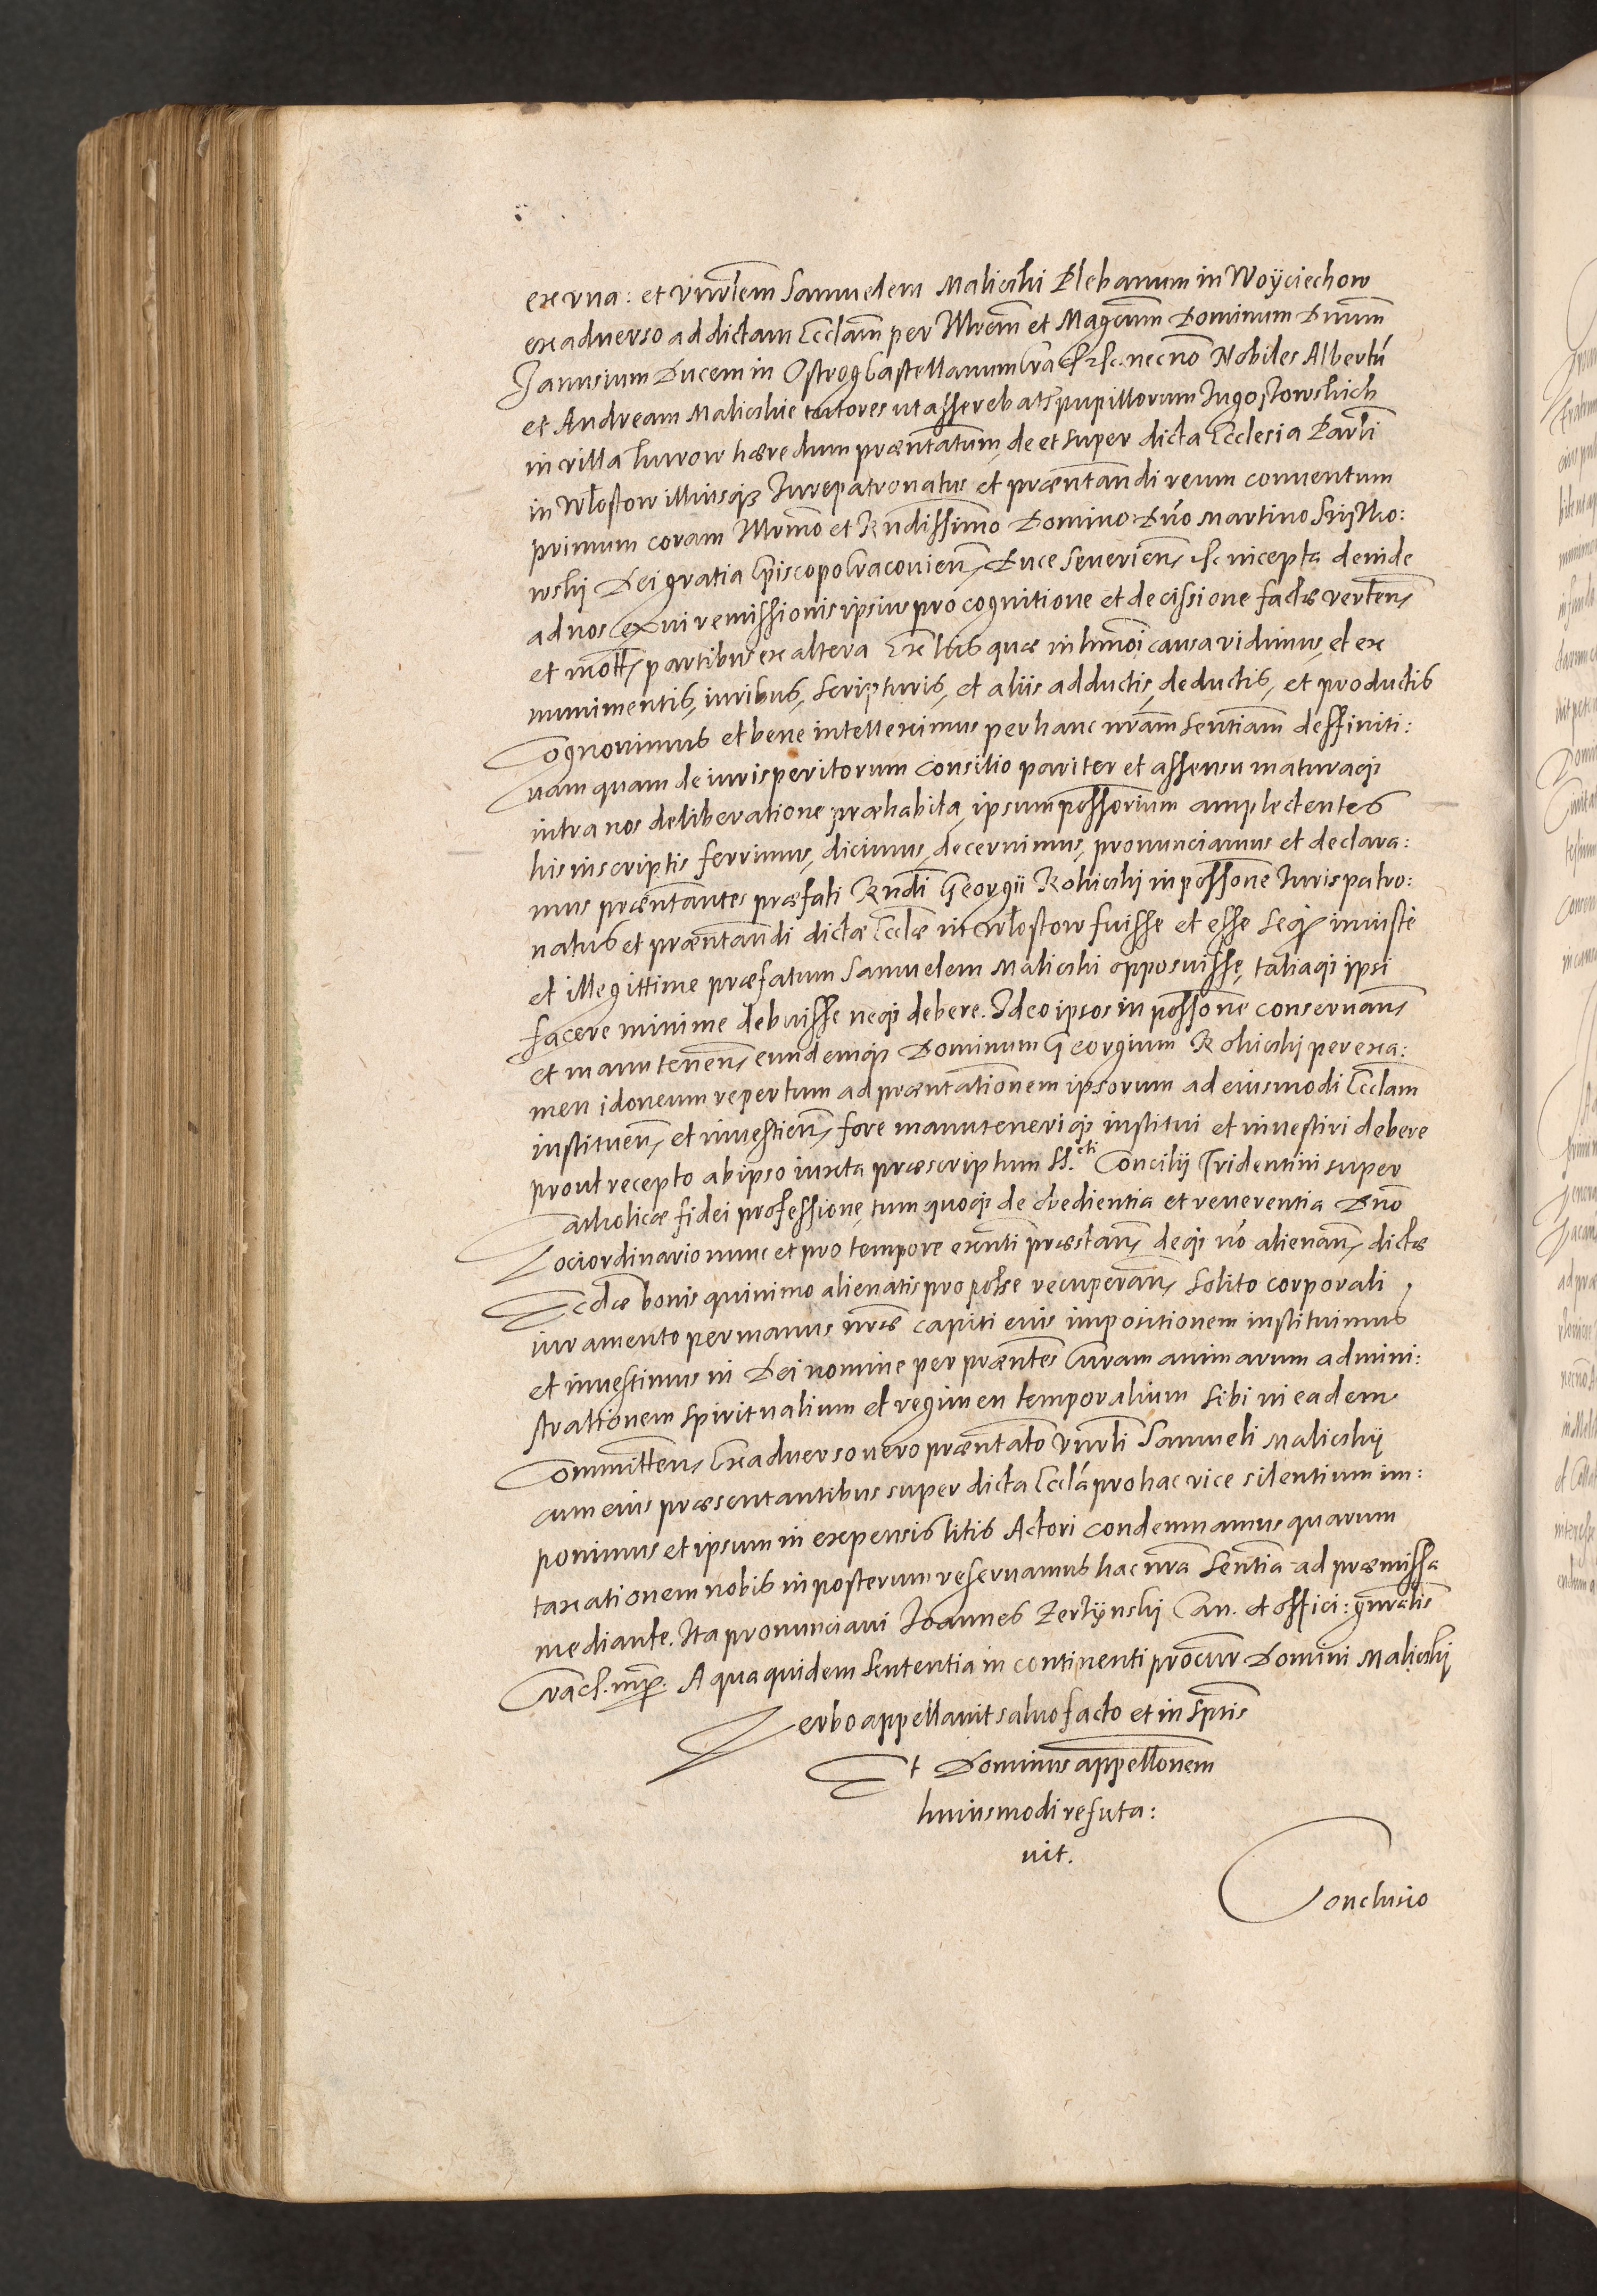 ex una: et Vnrlem Samuelem Maliczki Plebanum in Woyciechow
ex aduerso ad dictam Eccłam per Illrem et Mageum Dominum Dnum
Janusium Ducem in Ostrog Castellanum Crac: etc. necno Nobiles Albertu
et Andream Malicskie tutores ut asserebatr pupillorum Jugostowskich
in villa hæredum præntatum, de et super dicta Ecclesia Parłi
in Włostow illiusq3 Jurepatronatus et præntandi reum conuentum
primum coram Illrmo et Rndissimo Domino Dno Martino Szysko:
wskj Dei gratia Episcopo Cracouien, Duce Seuerien, etc. incepta deinde
ad nos ex ui remissionis ipsius pro cognitione et decissione factæ verten,
et mott, partibus ex altera Ex his quæ in hmoi causa vidimus, et ex
munimentis, iuribus, scripturis, et aliis adductis, deductis, et productis
Cognouimus et bene intelleximus per hanc nram sentiam deffiniti:
uam quam de iurisperitorum consilio pariter et assensu maturaq3
intra nos deliberatione præhabita, ipsum possorium amplectentes
his in scriptis ferrimus, dicimus, decernimus, pronunciamus et declara:
mus præntantes præfati Rndi Georgii Rohicskj in possone Jurispatro:
natus et præntandi dictæ Eccłæ in Włostow fuisse et esse seq3 iniuste
et illegittime præfatum Samuelem Malicski opposuisse, taliaq3 ipsi
facere minime debuisse neq3 debere. Ideo ipsos in possone conseruan,
et manutenen, eundemq3 Dominum Georgium Rohicskj per exa:
men idoneum repertum ad præntationem ipsorum ad eiusmodi Eccłam
instituen, et inuestien, fore manuteneriq3 institui et inuestiri debere
prout recepto ab ipso iuxta præscriptum SS.cti Concilij Tridentini super
Catholicæ fidei professione, tum quoq3 de obedientia et reuerentia Dno
Lociordinario nunc et pro tempore exnti præstan, deq3 no alienan, dictæ
Eccłæ bonis quinimo alienatis pro posse recuperan, solito corporali
iuramento per manus nræ capiti eius impositionem instituimus
et inuestimus in Dei nomine per præntes Curam animarum admini:
strationem spiritualium et regimen temporalium sibi in eadem
Committen, Ex aduerso uero præntato Vnrli Samueli Malicskij
cum eius præsentantibus super dicta Eccła pro hac vice silentium im:
ponimus et ipsum in expensis litis Actori condemnamus quarum
taxationem nobis in posterum reseruamus hac nra sentia ad præmissa
mediante. Ita pronunciaui Joannes Zerzynski Can. et offici: gnralis
Crac. mp. A qua quidem sententia in continenti procur Domini Malicskj
Verbo appellauit saluo facto et in sptis
Et Dominus appellonem
huiusmodi refuta:
uit.
Conclusio